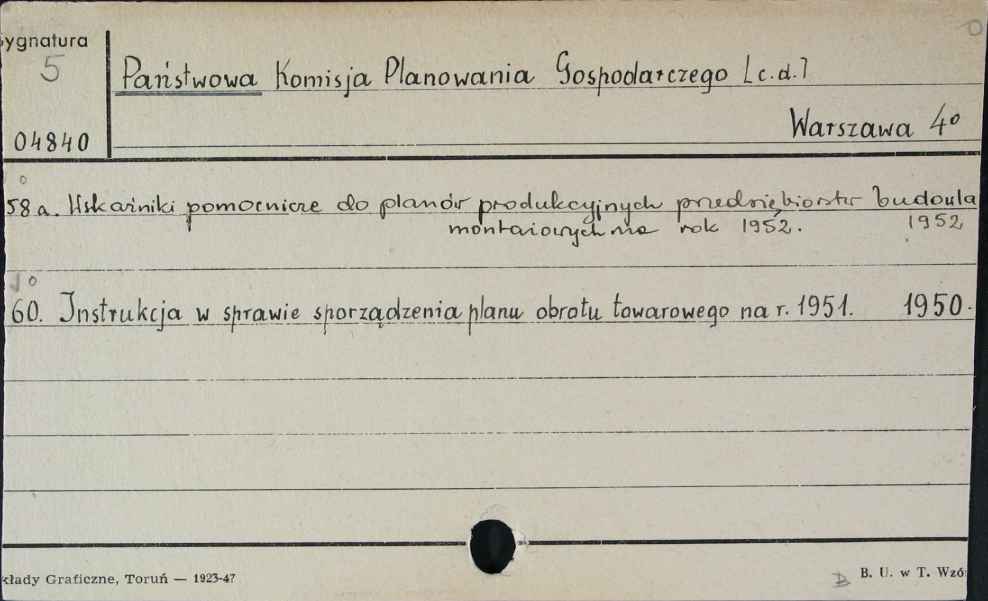 ygnatura
5
Państwowa Komisja Planowania Gospodarczego [c.d.]
04840
Warszawa 4o
o
58a. Wskaźniki pomocnicze do planów produkcyjnych przedsiębiorstw budowla
montażowych na rok 1952. 1952
o
60. Instrukcja w sprawie sporządzenia planu obrotu towarowego na r. 1951. 1950.
kłady Graficzne, Toruń — 1923-47
B. U. w T. Wzó